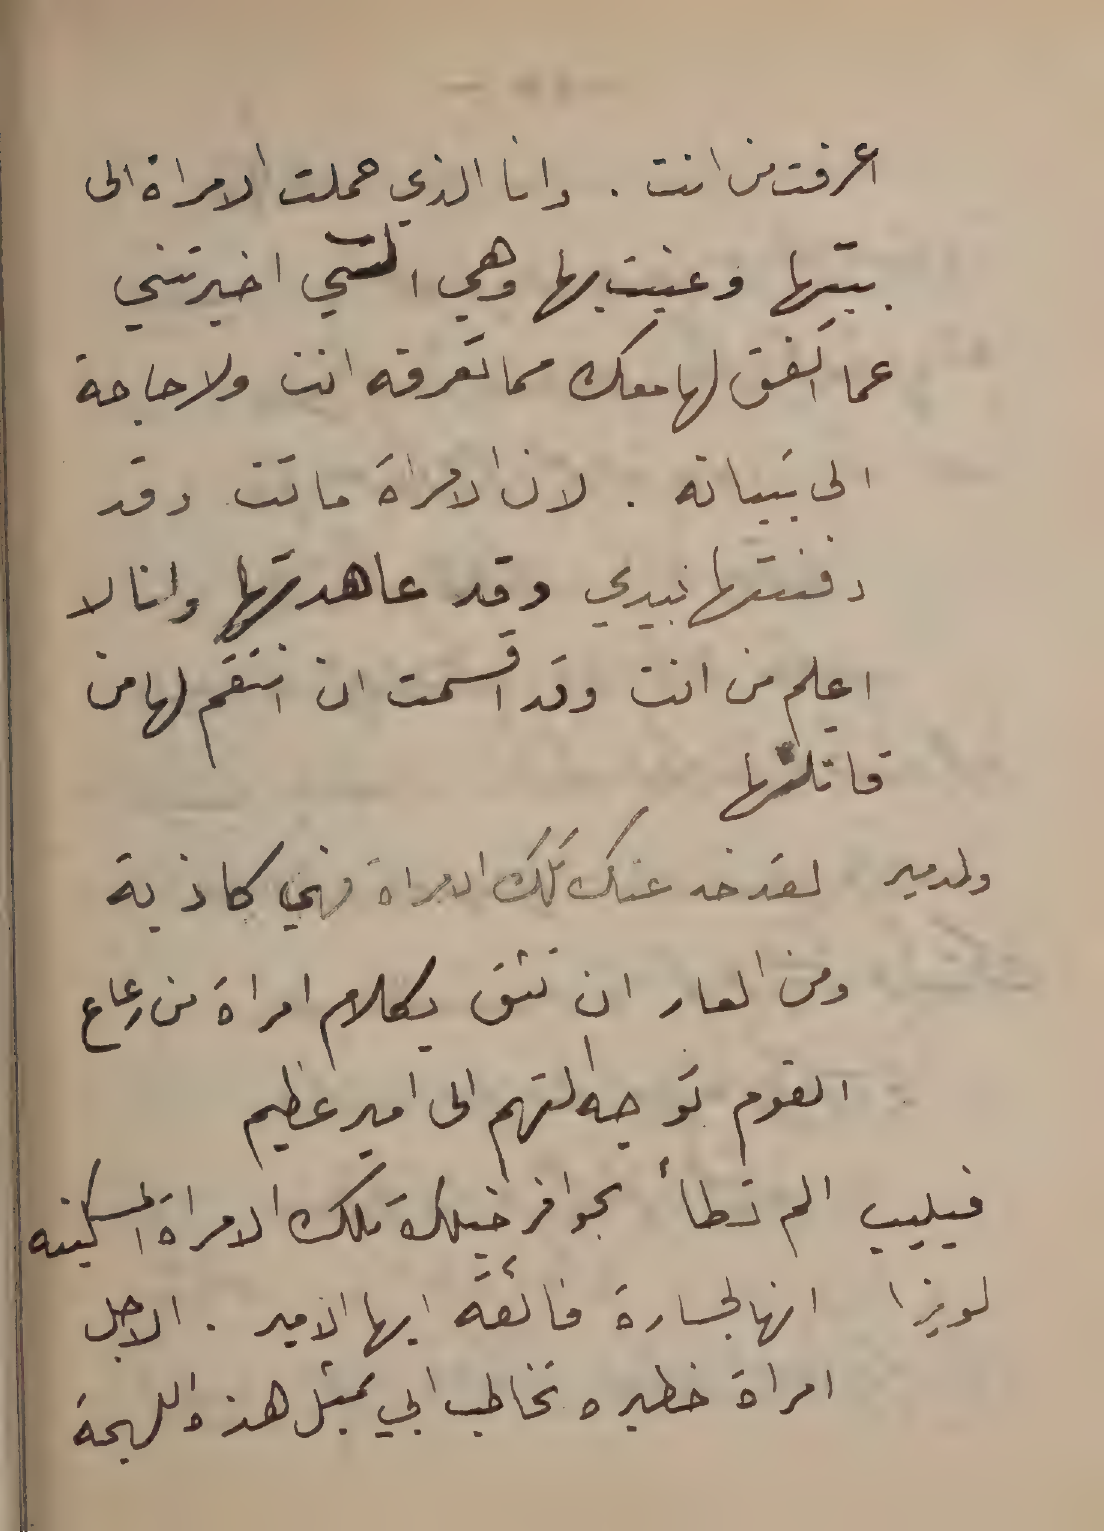 اعرفت من انت . وانا الذي حملت الامراة الى
بيتها وعنيت بها وهي التي اخبرتني
عما اتفق لها معك مما تعرفه انت ولا حاجة
الى بتيانه . لان الامراة ماتت وقد
دفنتها بيدي وقد عاهدتها وانا لا
اعلم من انت وقد اقسمت ان انتقم لها من
قاتلها
ولدمير لقد خدعتك تلك الامراة فهي كاذبة
ومن العار ان تثق بكلام امراة من رعاع
القوم توجه التهم الى امير عظيم
فيليب الم تطأ بحوافر خيلك تلك الامراة المسكينه
لويزا انها لجسارة فائقه ايها الامير . الاجل
امراة خطيره تخاطب ابي بمثل هذه اللهجة